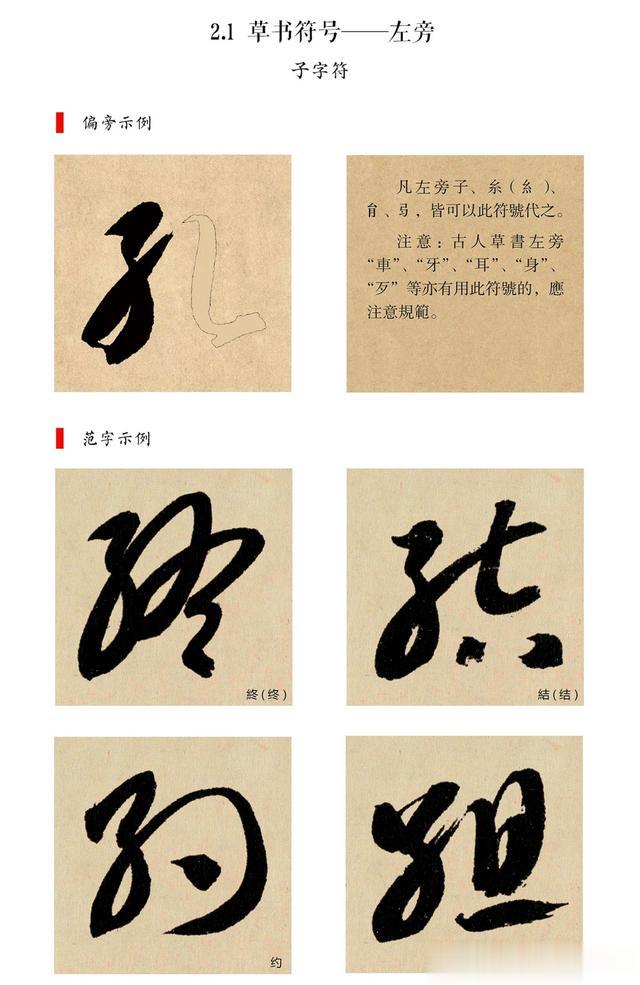 2.1 草书符号——左旁
子字符
偏旁示例
孔
凡左旁子、糸（糹）、
皆可以此符號代之。
注意：古人草書左旁
“車”、“牙”、“耳”、“身”、
“歹”等亦有用此符號的，應
注意規範。
范字示例
終
終(终)
結
結(结)
约
约